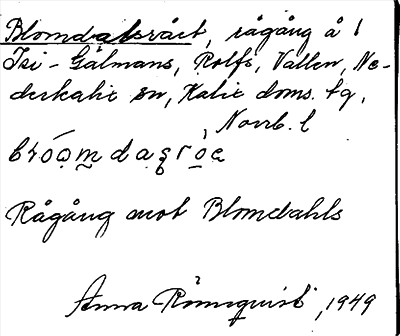 Blomdalsrået, rågång å l
Isi-Gälmans, Rolfs, Vallen, Ne-
derkalix sn, Kalix doms. tg,
Norrb. l
Rågång mot Blomdahls
Anna Rönnquist, 1949